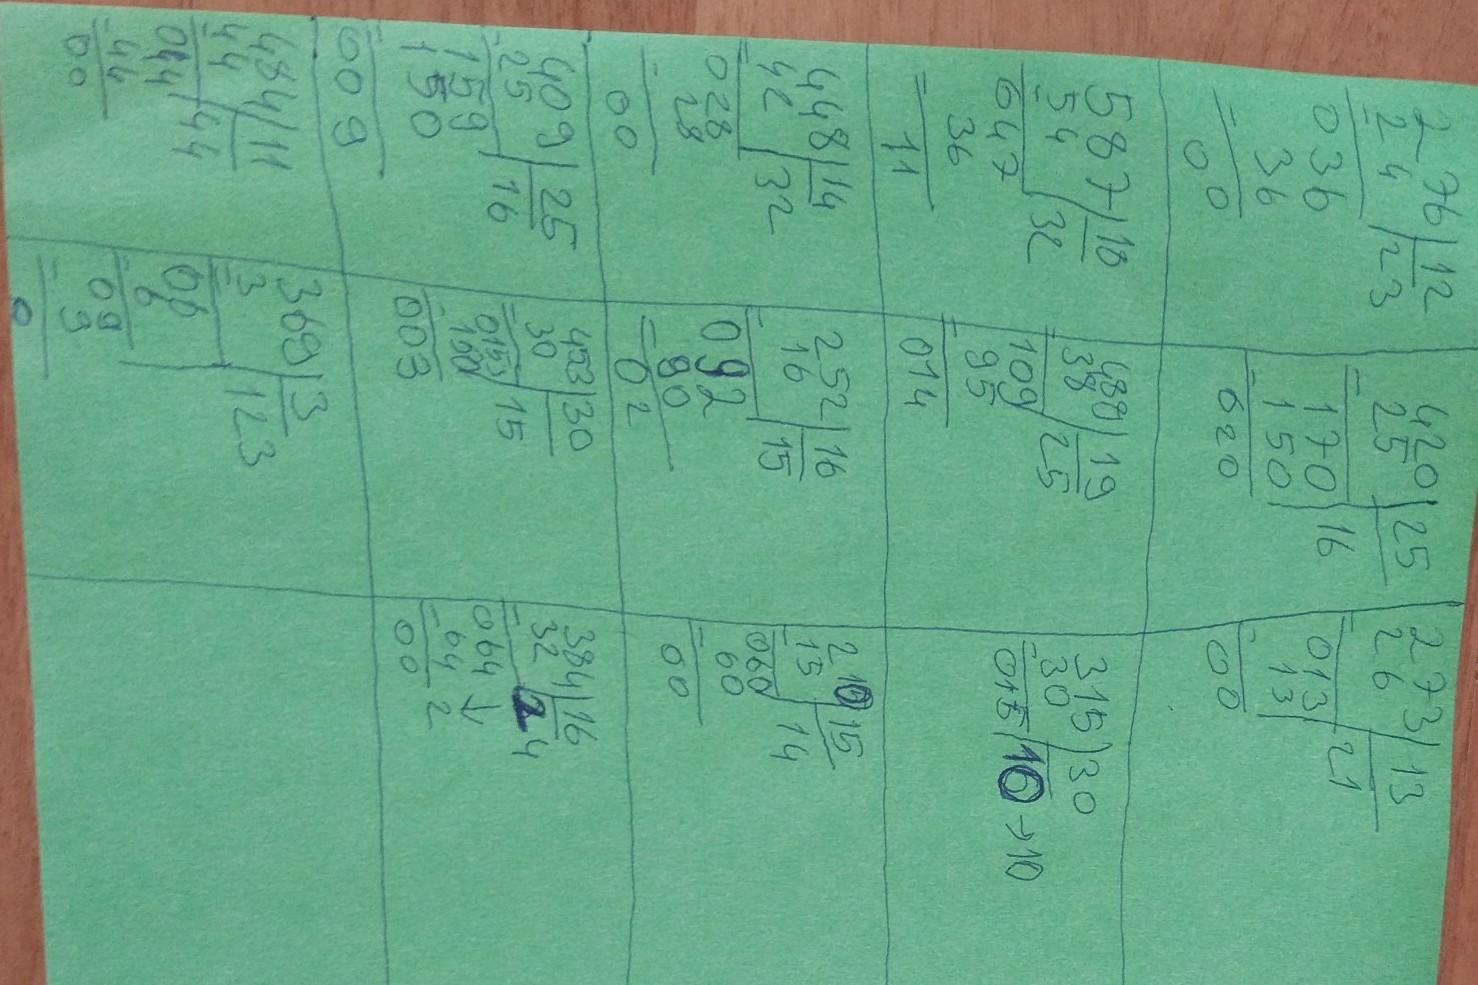 276 12
24 23
036
36
00
420 25
25 16
170
150
020
273 13
26 21
013
13
00
587 18
54 32
047
36
11
488 19
38 25
109
95
014
315 30
30 10 → 10
015
448 14
42 32
028
28
00
252 16
16 15
092
80
02
210 15
15 14
060
60
00
409 25
25 16
159
150
009
453 30
30 15
0153
150
003
384 16
32 24
064
64 2
00
484 11
44 44
044
44
00
369 3
3 123
06
6
09
9
0